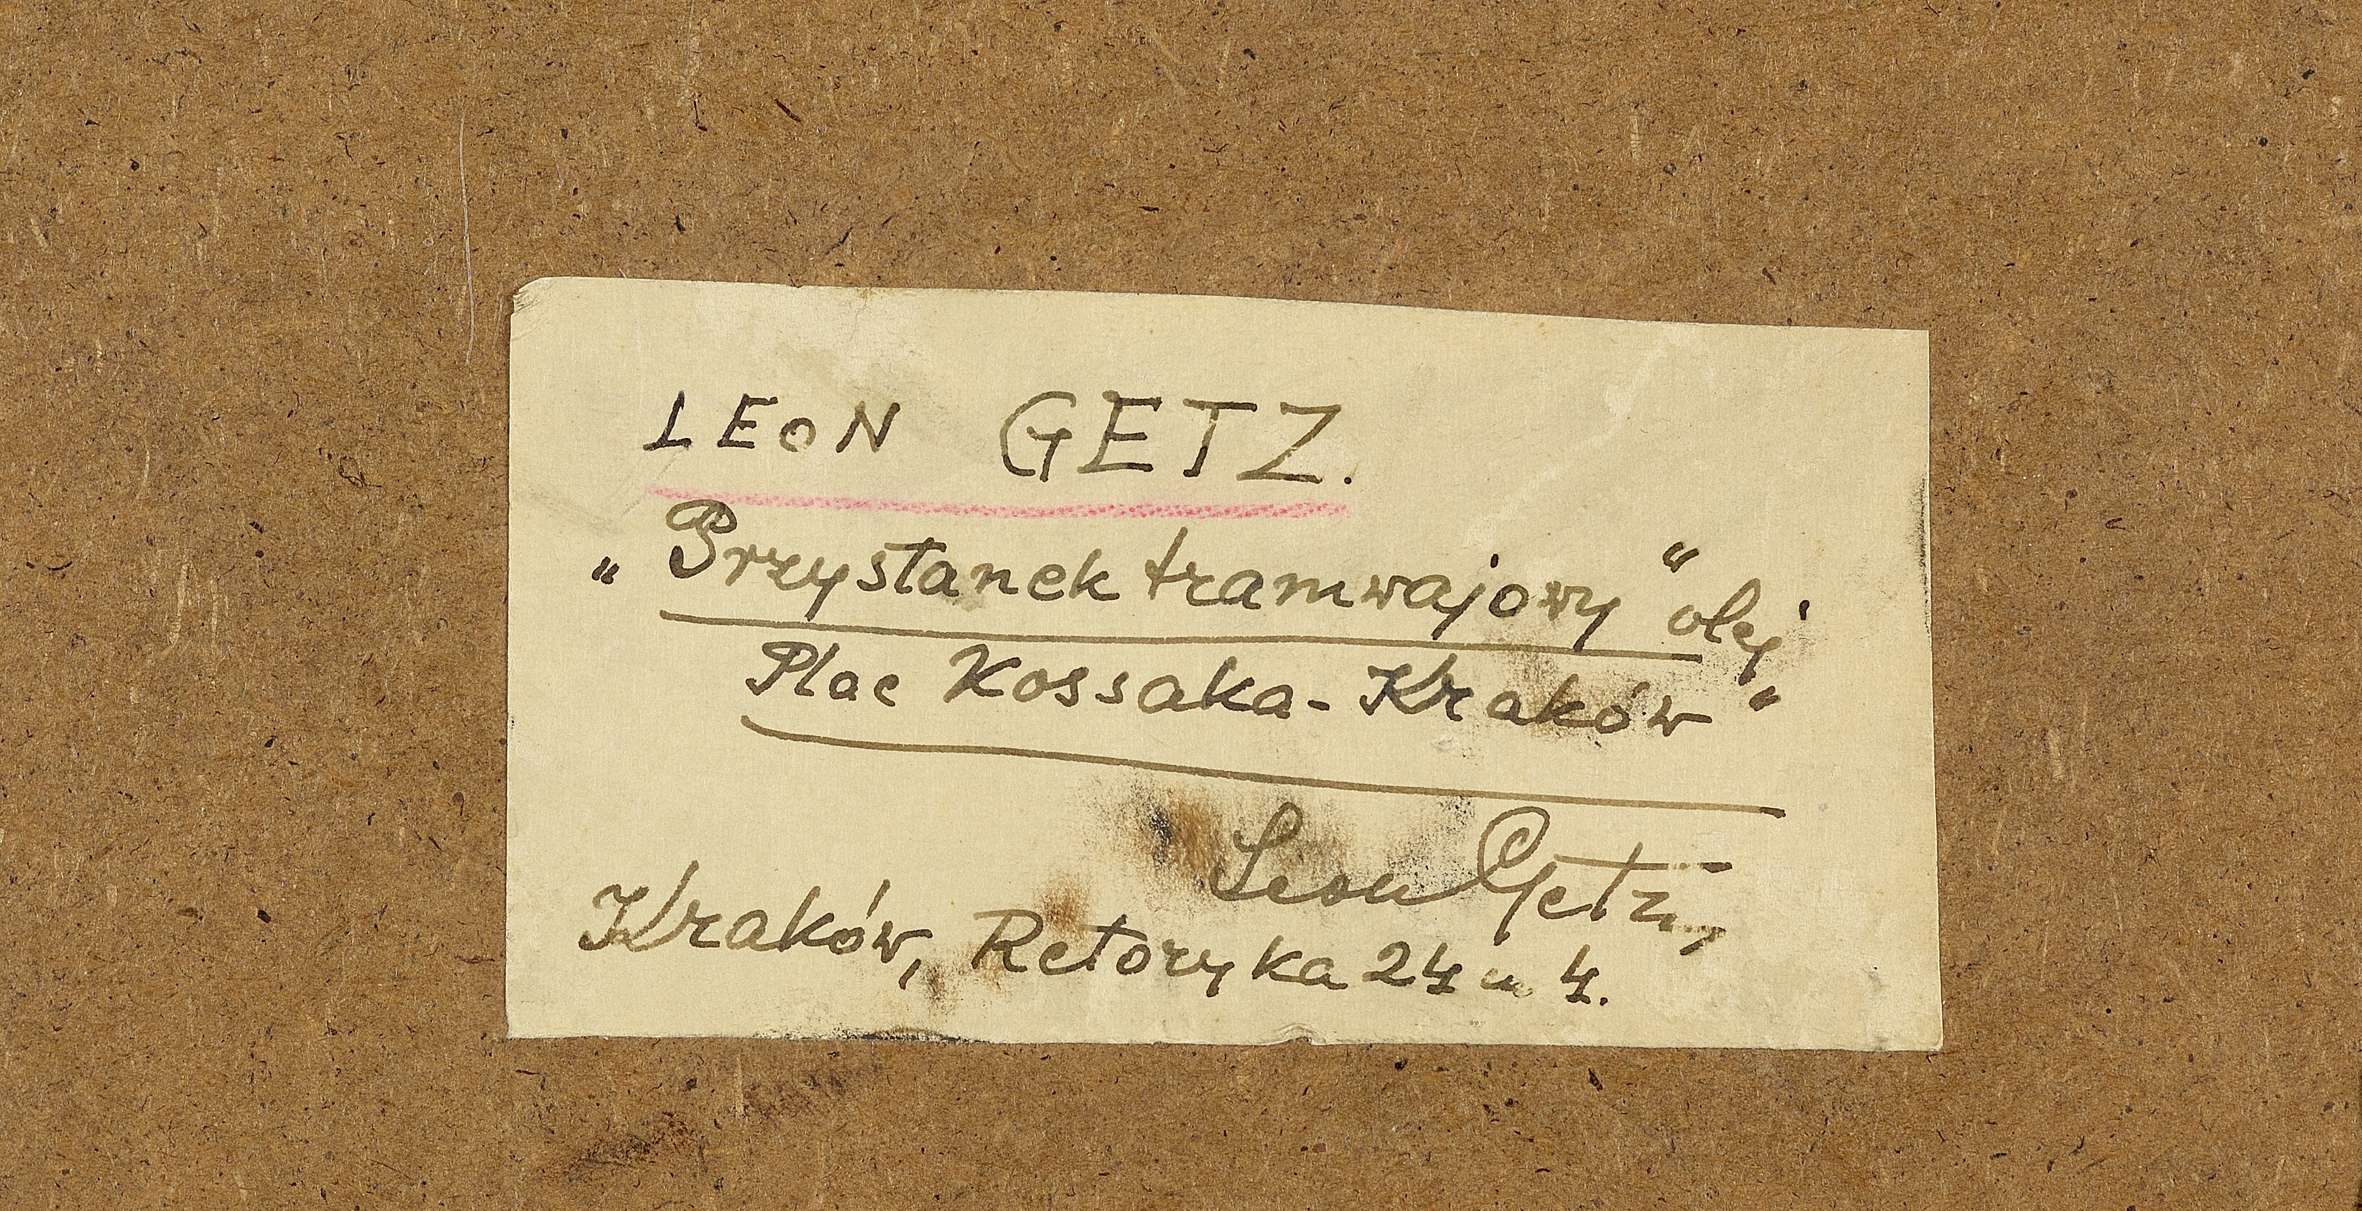 LEON GETZ.
„Przystanek tramwajowy" olej
Plac Kossaka - Kraków"
Leon Getz
Kraków, Retoryka 24 m 4.